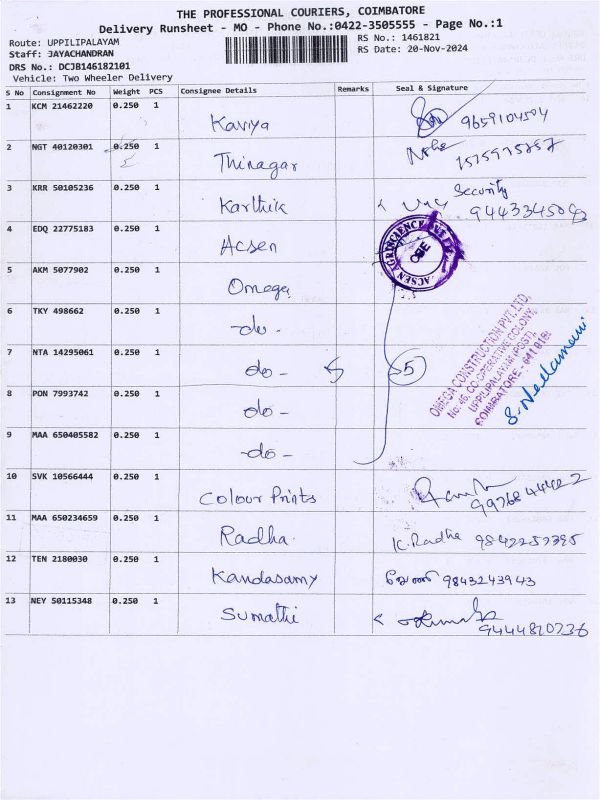 THE PROFESSIONAL COURIERS, COIMBATORE
Delivery Runsheet - MO - Phone No.:0422-3505555 - Page No.:1
Route: UPPILIPALAYAM
RS No.: 1461821
Staff: JAYACHANDRAN
RS Date: 20-Nov-2024
DRS No.: DCJB146182101
Vehicle: Two Wheeler Delivery
S No Consignment No Weight PCS Consignee Details Remarks Seal & Signature
1 KCM 21462220 0.250 1 Kaviya 9659104504
2 NGT 40120301 0.250 1 Thinagar
3 KRR 50105236 0.250 1 Karthik Security
4 EDQ 22775183 0.250 1 Acsen
ACSEN AGRISCIENCE
CBE
5 AKM 5077902 0.250 1 Omega
6 TKY 498662 0.250 1 -do-
7 NTA 14295061 0.250 1 -do- 5
8 PON 7993742 0.250 1 -do-
9 MAA 650405582 0.250 1 -do-
OMEGA CONSTRUCTION PVT. LTD,
No: 46, CO.OPERATIVE COLONY,
UPPILIPALAYAM (POST),
COIMBATORE - 641 015
S. Neelamani
10 SVK 10566444 0.250 1 Colour Prints
11 MAA 650234659 0.250 1 Radha K. Radha 9842252395
12 TEN 2180030 0.250 1 Kandasamy 9843243943
13 NEY 50115348 0.250 1 Sumathi 9444820236